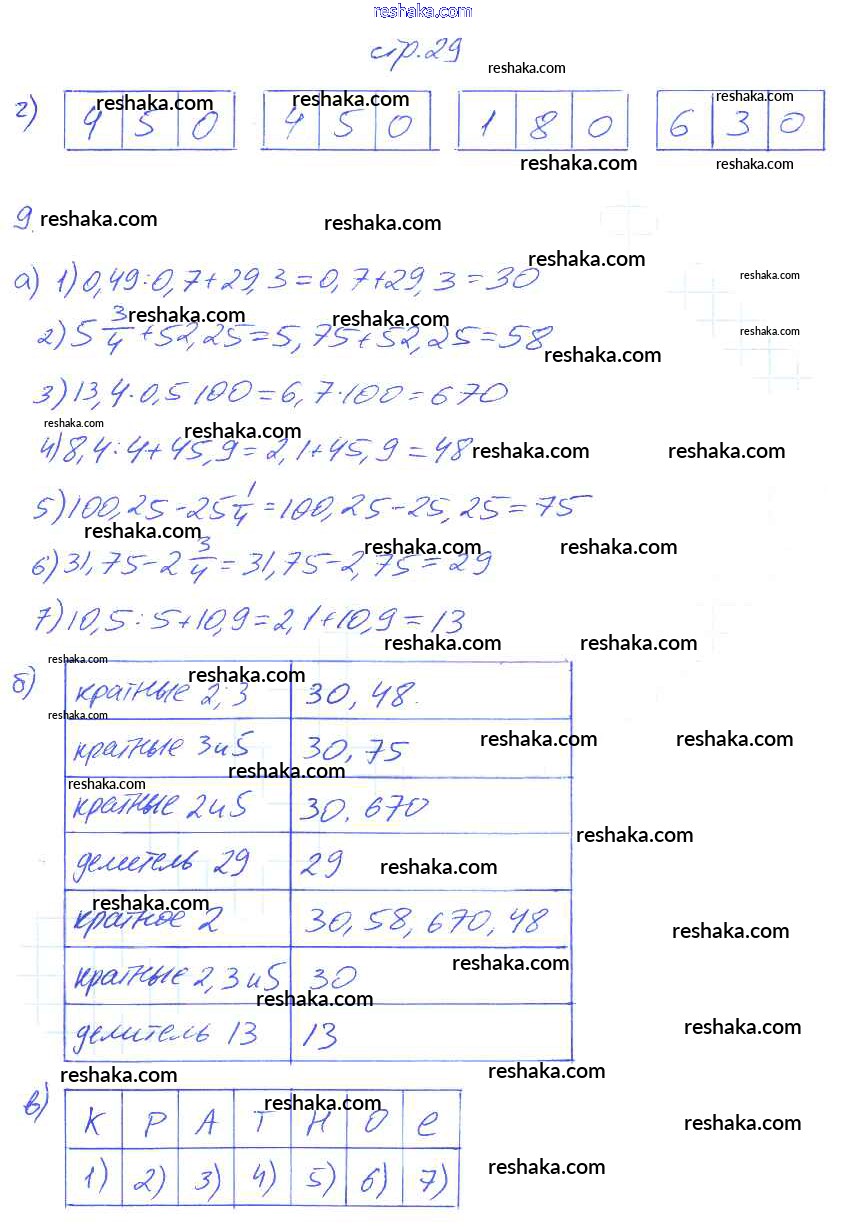 reshaka.com
стр.29
reshaka.com
г) 450 450 180 630
reshaka.com reshaka.com reshaka.com
reshaka.com reshaka.com
9. reshaka.com reshaka.com
reshaka.com
а) 1) 0,49:0,7+29,3=0,7+29,3=30
reshaka.com
2) 5 3/4 +52,25=5,75+52,25=58
reshaka.com reshaka.com reshaka.com
reshaka.com
3) 13,4·0,5 100=6,7·100=670
reshaka.com reshaka.com
4) 8,4:4+45,9=2,1+45,9=48
reshaka.com reshaka.com
5) 100,25-25 1/4 =100,25-25,25=75
reshaka.com
6) 31,75-2 3/4 =31,75-2,75=29
reshaka.com reshaka.com
7) 10,5:5+10,9=2,1+10,9=13
reshaka.com reshaka.com
reshaka.com reshaka.com
б) кратные 2;3 30,48.
reshaka.com
кратные 3и5 30,75
reshaka.com reshaka.com
reshaka.com
reshaka.com
кратные 2и5 30,670
reshaka.com
делитель 29 29
reshaka.com
reshaka.com
кратное 2 30,58,670,48
reshaka.com
reshaka.com
кратные 2,3и5 30
reshaka.com
делитель 13 13
reshaka.com
reshaka.com reshaka.com
в) К Р А Т Н О е
reshaka.com reshaka.com
1) 2) 3) 4) 5) 6) 7)
reshaka.com